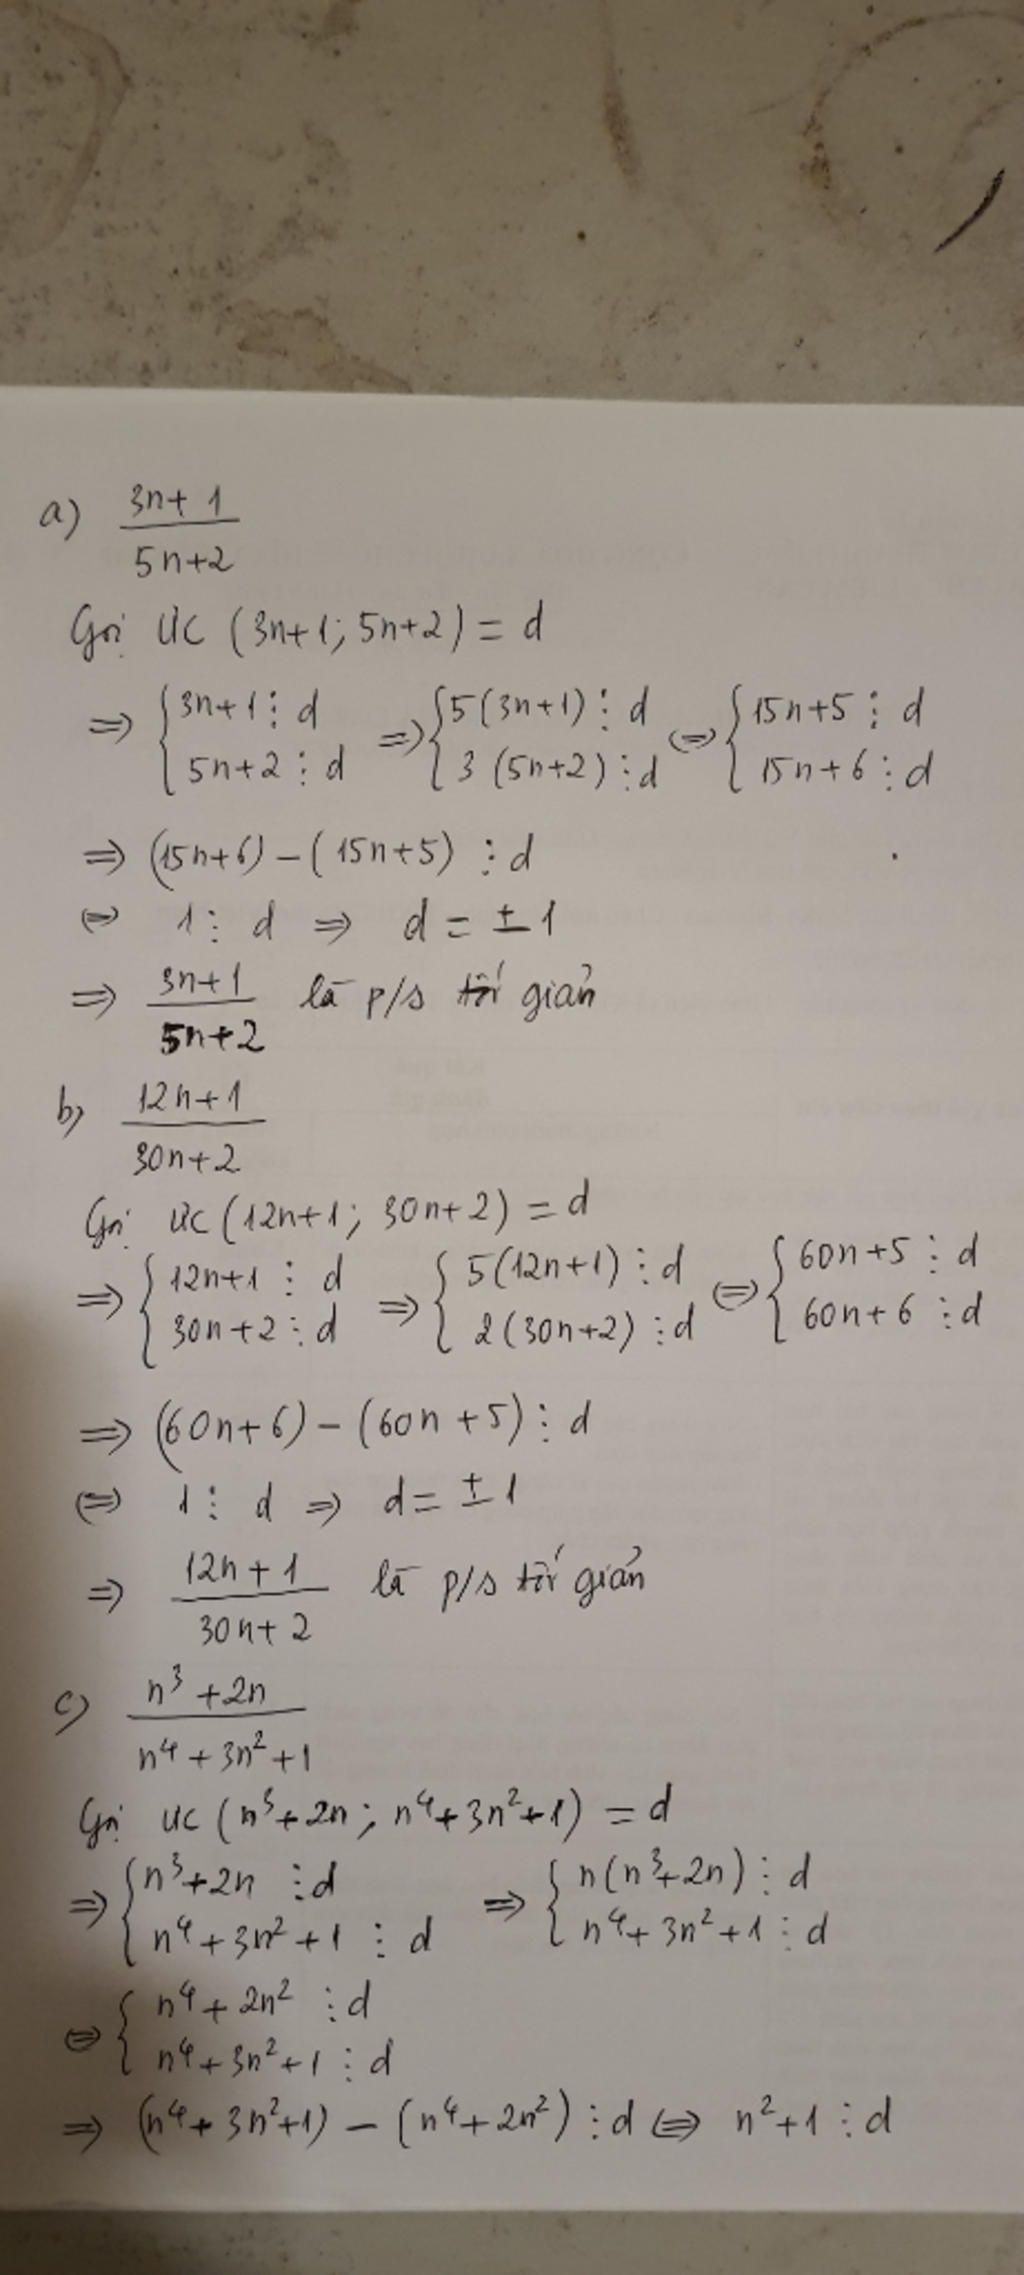 a) (3n+1)/(5n+2)
Gọi ƯC (3n+1; 5n+2) = d
=> { 3n+1 ⋮ d ; 5n+2 ⋮ d => { 5(3n+1) ⋮ d ; 3 (5n+2) ⋮ d <=> { 15n+5 ⋮ d ; 15n+6 ⋮ d
=> (15n+6) - (15n+5) ⋮ d
<=> 1 ⋮ d => d = ±1
=> (3n+1)/(5n+2) là p/s tối giản
b) (12n+1)/(30n+2)
Gọi ƯC (12n+1; 30n+2) = d
=> { 12n+1 ⋮ d ; 30n+2 ⋮ d => { 5(12n+1) ⋮ d ; 2(30n+2) ⋮ d <=> { 60n+5 ⋮ d ; 60n+6 ⋮ d
=> (60n+6) - (60n+5) ⋮ d
<=> 1 ⋮ d => d = ±1
=> (12n+1)/(30n+2) là p/s tối giản
c) (n³+2n)/(n⁴+3n²+1)
Gọi ƯC (n³+2n; n⁴+3n²+1) = d
=> { n³+2n ⋮ d ; n⁴+3n²+1 ⋮ d => { n(n³+2n) ⋮ d ; n⁴+3n²+1 ⋮ d
<=> { n⁴+2n² ⋮ d ; n⁴+3n²+1 ⋮ d
=> (n⁴+3n²+1) - (n⁴+2n²) ⋮ d <=> n²+1 ⋮ d